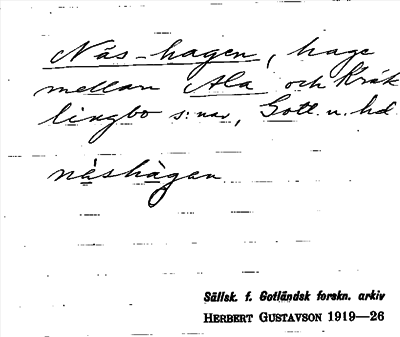 Näs-hagen, hage
mellan Ala och Kräk
lingbo s:nar, Gotl. n. hd
nèshàgen
Sällsk. f. Gotländsk forskn. arkiv
HERBERT GUSTAVSON 1919—26